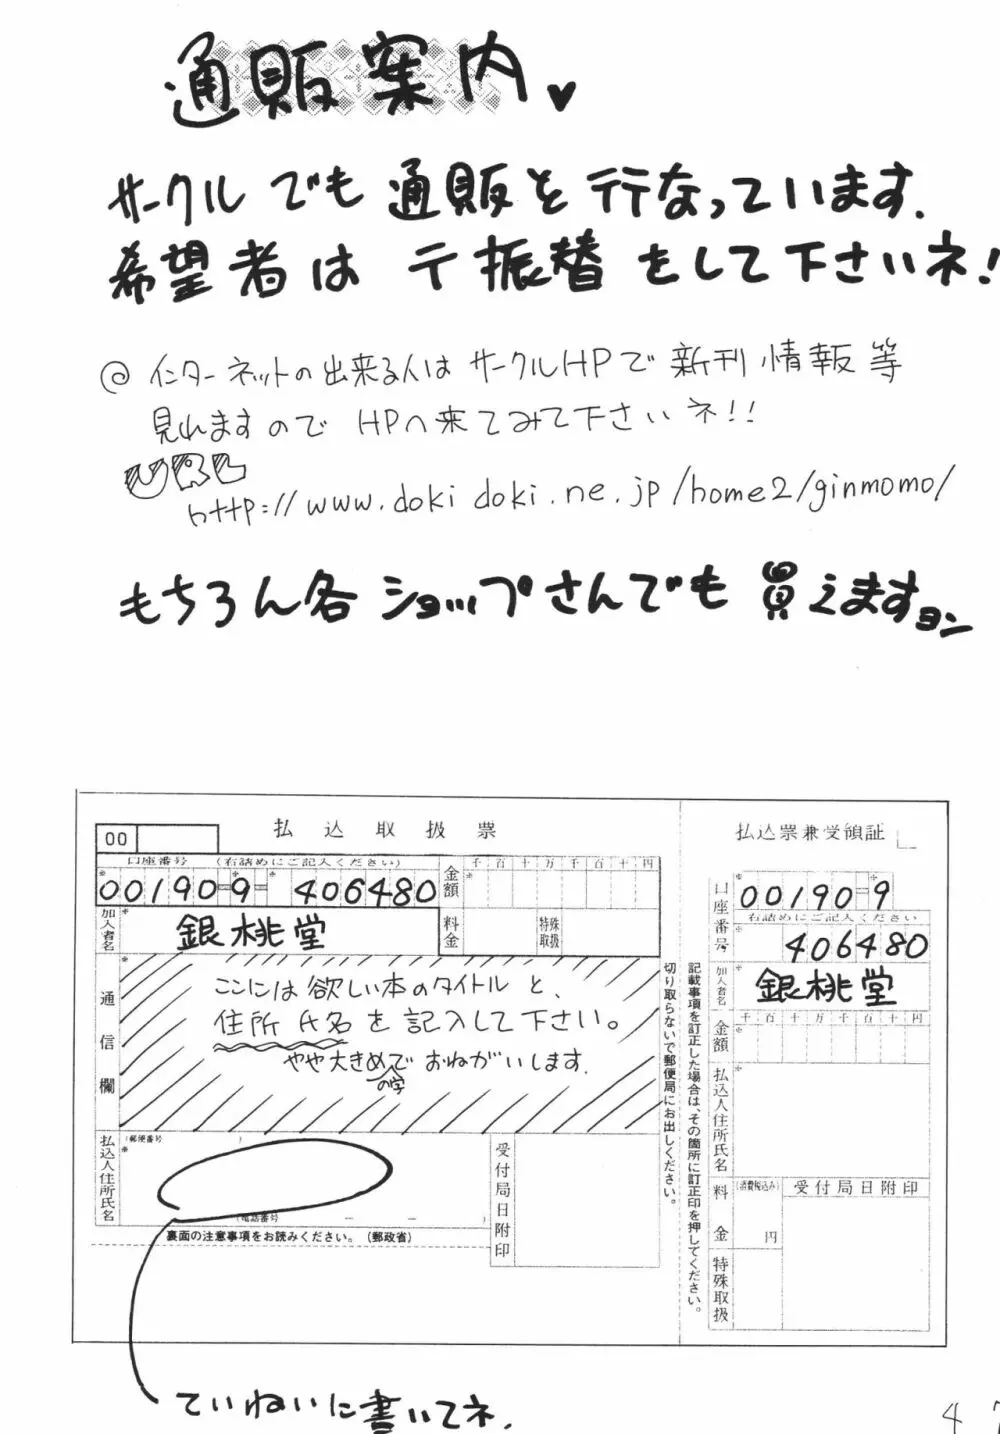 通販案内♥
サークルでも通販を行なっています.
希望者は〒振替をして下さいネ!
@ インターネットの出来る人はサークルHPで新刊情報等
見れますのでHPへ来てみて下さいネ!!
URL
http://www.dokidoki.ne.jp/home2/ginmomo/
もちろん各ショップさんでも買えますョン
00
払込取扱票
口座番号 (右詰めにご記入ください)
00190-9- 406480
金額
千百十万千百十円
加入者名
銀桃堂
料金
特殊取扱
通信欄
ここには欲しい本のタイトルと、
住所氏名を記入して下さい。
やや大きめの字でおねがいします.
払込人住所氏名
(郵便番号 )
(電話番号 - - )
受付局日附印
裏面の注意事項をお読みください。(郵政省)
切り取らないで郵便局にお出しください。
記載事項を訂正した場合は、その箇所に訂正印を押してください。
払込票兼受領証
口座番号
00190-9
右詰めにご記入ください
406480
加入者名
銀桃堂
金額
千百十万千百十円
払込人住所氏名
料金
(消費税込み)
円
受付局日附印
特殊取扱
ていねいに書いてネ.
47